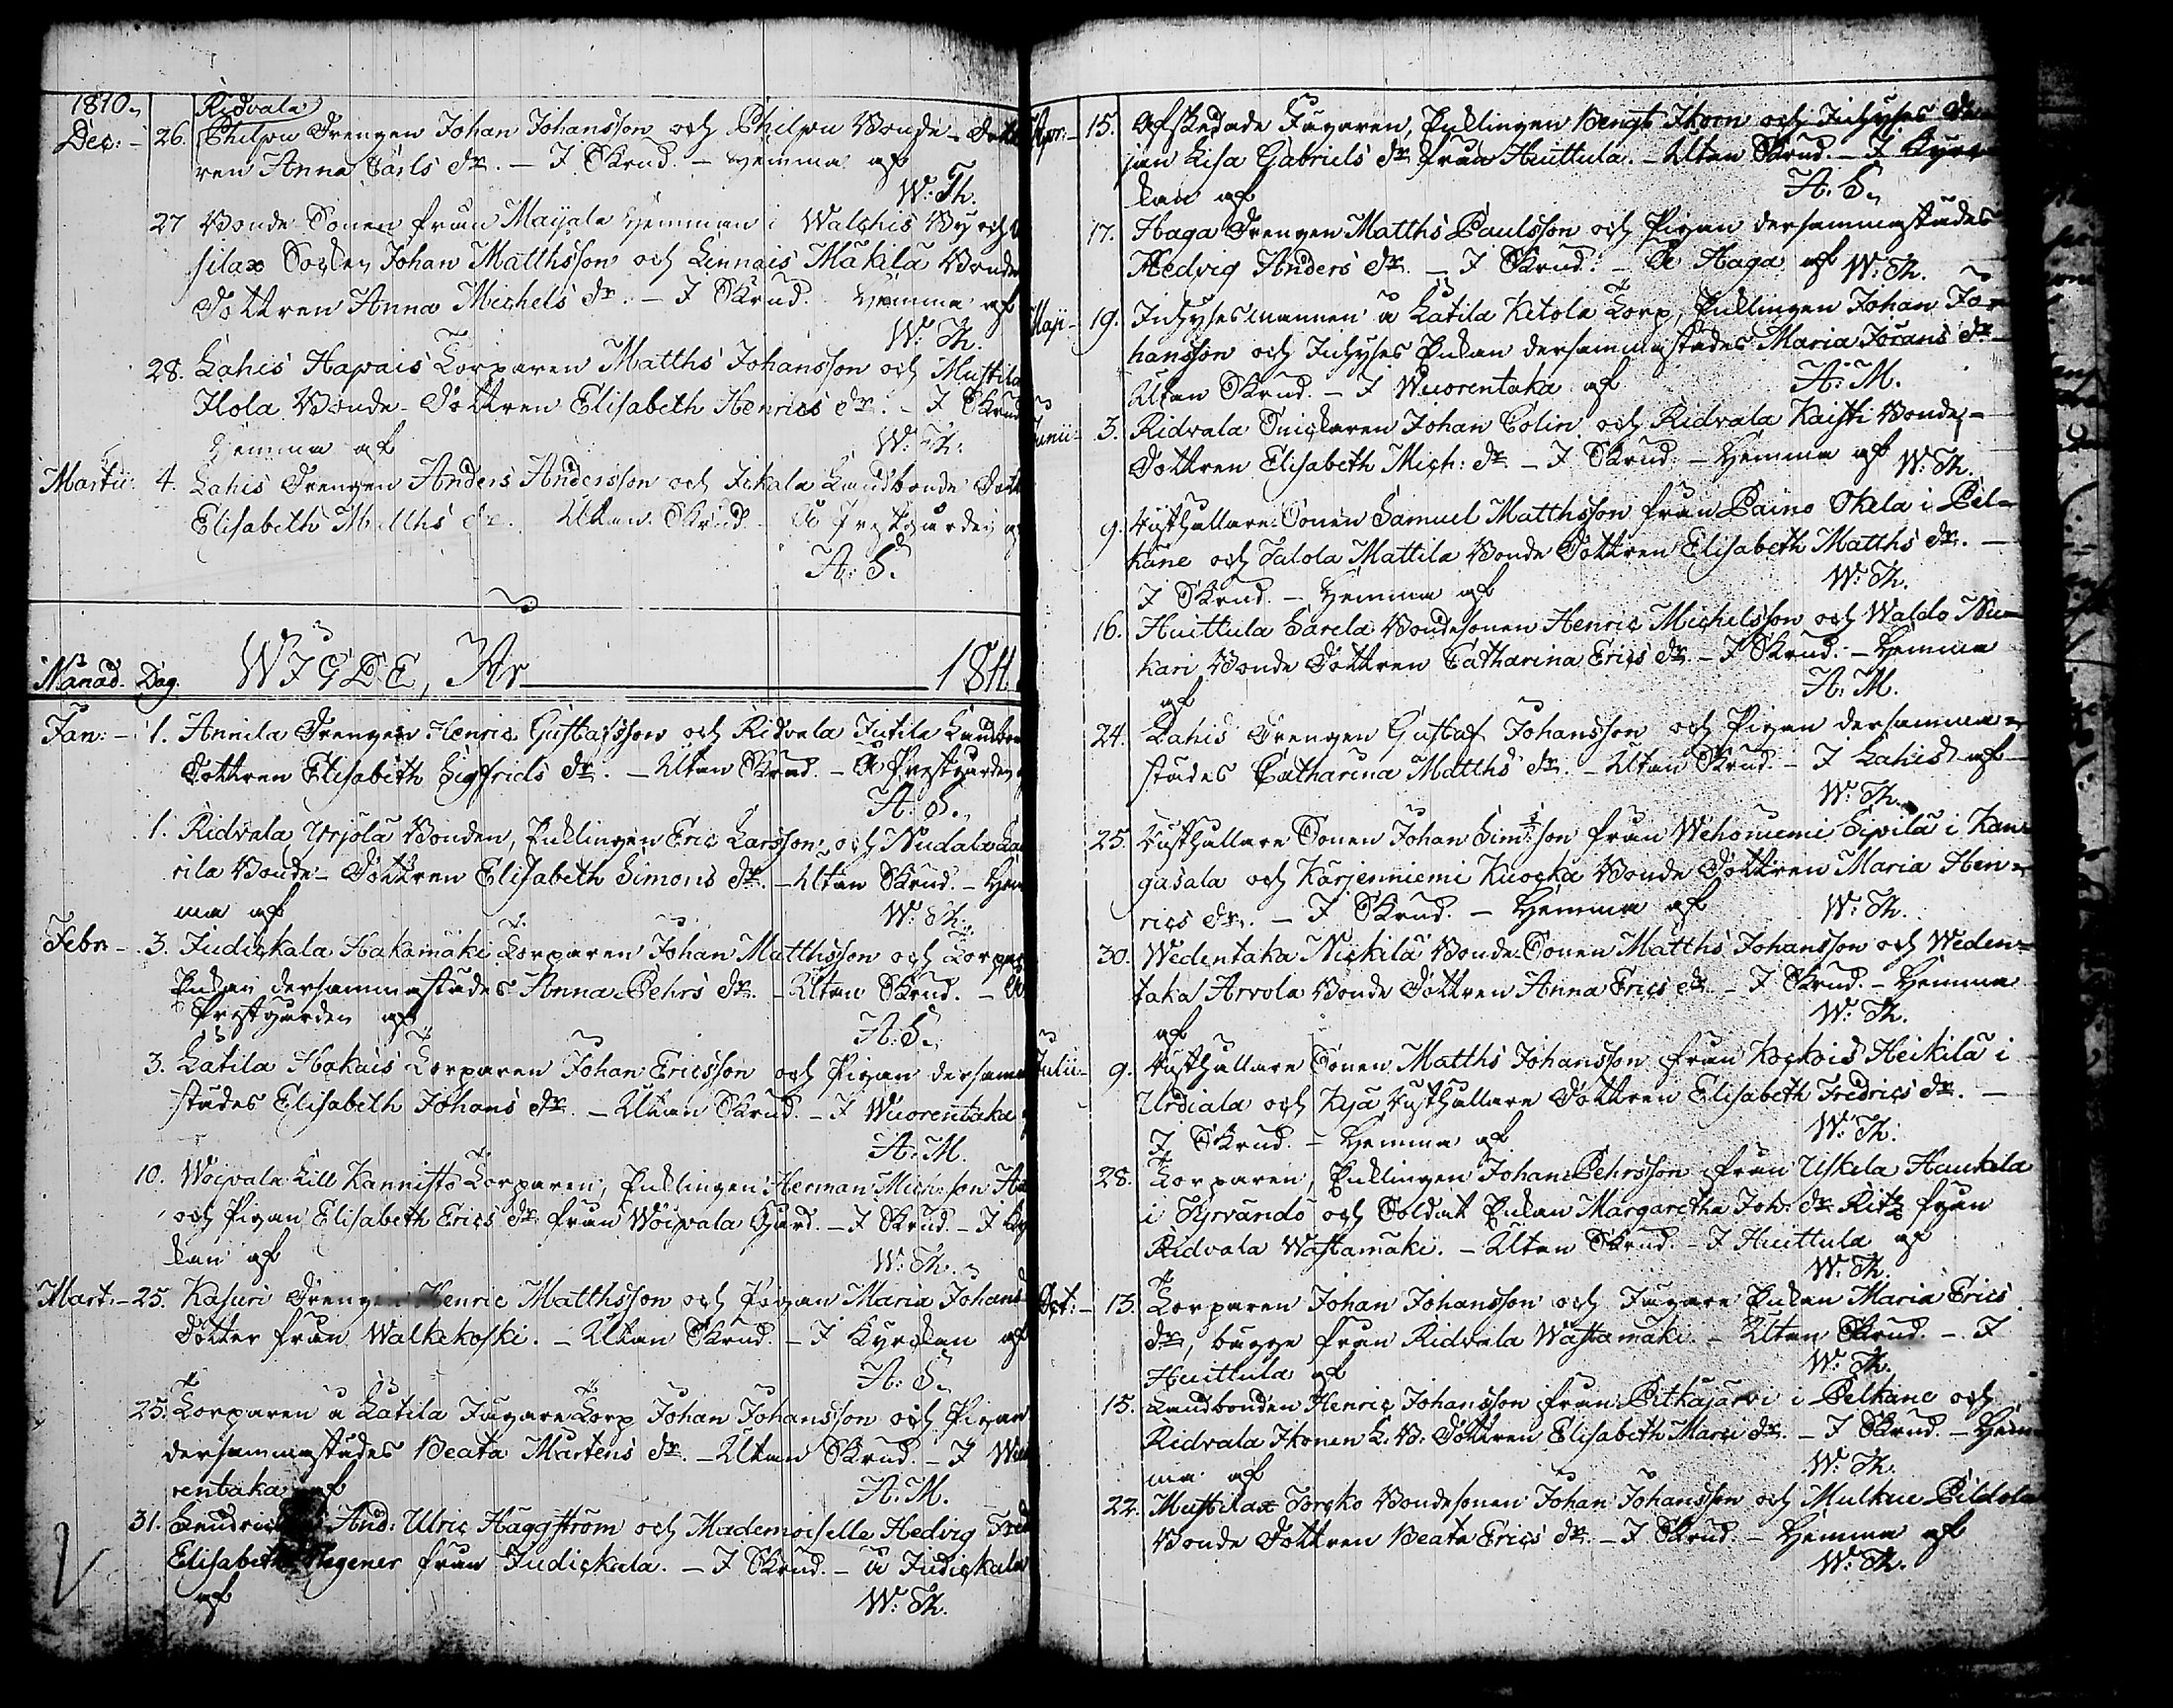 1810.
Ridvala
Dec: - 26. Philpu Drengen Johan Johansson och Philpu Bonde-Dott
ren Anna Carls dr. - I Skrud. - Hemma af
W: Th.
27 Bonde Sonen från Maijala Hemman i Walchis By och
silax Socken Johan Matthsson och Linnais Mäkilä Bonde
Dottren Anna Michels dr. - I Skrud. Hemma af
W: Th.
28. Lahis Hapais Torparen Matths Johansson och Mustila
Ilola Bonde-Dottren Elisabeth Henrics dr. - I Skrud
Hemma af W: Th.
Martii. 4. Lahis Drengen Anders Andersson och Ickala Landbonde Dott
Elisabeth Matths dr. Utan Skrud - Å Prestgården af
A: S.
WIGDE, År 1811.
Månad. Dag.
Jan: - 1. Annila Drengen Henric Gustafsson och Ridvala Jutila Landbon
Dottren Elisabeth Sigfrids dr. - Utan Skrud. - Å Prestgården
A: S.
1. Ridvala Yrjölä Bonden, Enklingen Eric Larsson och Nudala La
rila Bonde-Dottren Elisabeth Simons dr. - Utan Skrud. - Hem
ma af W: Th.
Febr - 3. Judickala Hakamäki Torparen Johan Matthsson och Torpar
Enkan dersammastädes Anna Pehrs dr. - Utan Skrud. - Å
Prestgården af
A: S.
3. Latila Hokais Torparen Johan Ericsson och Pigan dersamma
städes Elisabeth Johans dr. - Utan Skrud. - I Wuorentaka
A: M.
10. Woipala Lill Kannisto Torparen, Enklingen Herman Mich:sson
och Pigan Elisabeth Erics dr från Woipala Gård. - I Skrud. - I Kyr
kan af W: Th.
Mart: - 25. Kasuri Drengen Henric Matthsson och Pigan Maria Johans
Dotter från Walkakoski. - Utan Skrud. - I Kyrkan af
A: S.
25. Torparen å Latila Jägare Torp Johan Johansson och Pigan
dersammastädes Beata Mårtens dr. - Utan Skrud. - I Wuo
rentaka af A: M.
31. And: Ulric Häggström och Mademoiselle Hedvig Fred
Elisabeth från Judickala. - I Skrud. - å Judickala
af W: Th.
Apr: - 15. Afskedade Jägaren, Enklingen Bengt Thoon och Inhyses
jan Lisa Gabriels dr från Huittula. - Utan Skrud. - I Kyr
kan af A: S.
17. Haga Drengen Matths Paulsson och Pigan dersammastädes
Hedvig Anders dr. - I Skrud. - Å Haga af W: Th.
Maji - 19. Inhysesmannen å Latila Ketola Torp, Enklingen Johan Jo-
hansson och Inhyses Enkan dersammastädes Maria Jörans dr -
Utan Skrud. - I Wuorentaka af A: M.
Junii - 3. Ridvala Snickaren Johan Colin och Ridvala Kaisti Bonde-
Dottren Elisabeth Mich: dr. - I Skrud. - Hemma af W: Th.
9. Rusthållare-Sonen Samuel Matthsson från Paino Okela i Pel-
käne och Talola Mattila Bonde Dottren Elisabeth Matths dr. -
I Skrud. - Hemma af W: Th.
16. Huittula Sarela Bondesonen Henric Michelsson och Waldo Nu-
kari Bonde Dottren Catharina Erics dr - I Skrud. - Hemma
af A: M.
24. Lahis Drengen Gustaf Johansson och Pigan dersamma-
städes Catharina Matths dr. - Utan Skrud. - I Lahis af
W: Th.
25. Rusthållare Sonen Johan Sim:sson från Wehoniemi Sipilä i Kan-
gasala och Karjenniemi Kuocka Bonde Dottren Maria Hen-
rics dr. - I Skrud. - Hemma af W: Th.
30. Wedentaka Nickilä Bonde-Sonen Matths Johansson och Weden-
taka Arvola Bonde Dottren Anna Erics dr - I Skrud. - Hemma
af W: Th.
Julii - 9. Rusthållare Sonen Matths Johansson från Kockois Heikilä i
Urdiala och Kyä Rusthållare Dottren Elisabeth Fredrics dr. -
I Skrud. - Hemma af W: Th.
28. Torparen, Enklingen Johan Pehrsson från Uskela Haukila
i Tyrvändö och Soldat Enkan Margaretha Joh: dr Ritz från
Ridvala Wästamäki. - Utan Skrud. - I Huittula af
W: Th.
Oct: - 13. Torparen Johan Johansson och Jägare Enkan Maria Erics
dr, begge från Ridvala Wästamäki. - Utan Skrud. - I
Huittula af W: Th.
15. Landbonden Henric Johansson från Pitkäjärvi i Pelkäne och
Ridvala Ikonen L: B: Dottren Elisabeth Marci dr. - I Skrud. - Hem-
ma af W: Th.
22. Mustilax Torcko Bondesonen Johan Johansson och Mulkue Pildola
Bonde Dottren Beata Erics dr. - I Skrud. - Hemma af
W: Th.